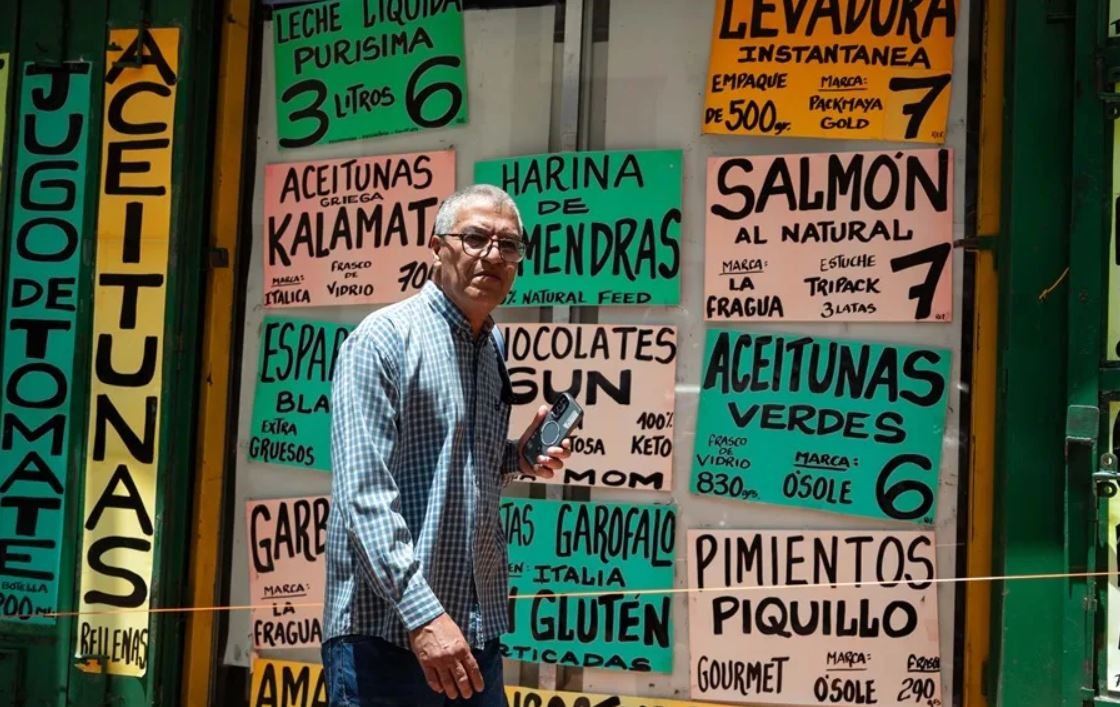 JUGO DE TOMATE
BOTELLA
ACEITUNAS
RELLENAS
LECHE LIQUIDA
PURISIMA
3 LITROS 6
ACEITUNAS
GRIEGA
MARCA:
ITALICA
FRASCO
DE
VIDRIO
ESPAR
BLA
EXTRA
GRUESOS
GARB
MARCA:
LA
FRAGUA
AMA
HARINA
DE
MENDRAS
% NATURAL FEED
OCOLATES
SUN
TOSA
100%
KETO
MOM
TAS GAROFALO
EN: ITALIA
GLUTÉN
RTICADAS
LEVADURA
INSTANTANEA
EMPAQUE
DE 500gr.
MARCA:
PACKMAYA
GOLD
7
SALMÓN
AL NATURAL
MARCA:
LA
FRAGUA
ESTUCHE
TRIPACK
3 LATAS
7
ACEITUNAS
VERDES
FRASCO
DE
VIDRIO
830grs.
MARCA:
O'SOLE
6
PIMIENTOS
PIQUILLO
GOURMET
MARCA:
O'SOLE
290